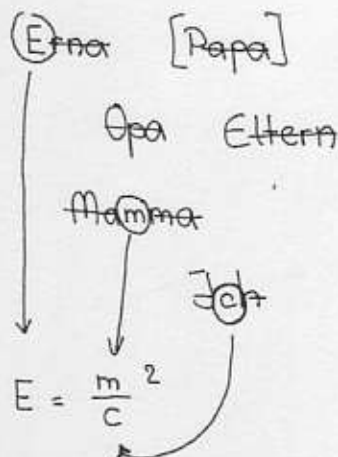 Erna [Papa]
Opa Eltern
Mamma
Ich
E = m/c ²